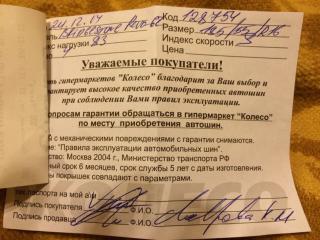 24.12.14 Код 128754
Размер
нагрузки 83 Индекс скорости
Цена
Уважаемые покупатели!
сеть гипермаркетов "Колесо" благодарит за Ваш выбор и
гарантирует высокое качество приобретенных автошин
при соблюдении Вами правил эксплуатации.
вопросам гарантии обращаться в гипермаркет "Колесо"
по месту приобретения автошин.
с механическими повреждениями с гарантии снимаются.
ие: "Правила эксплуатации автомобильных шин".
ство: Москва 2004 г., Министерство транспорта РФ
ный срок 6 месяцев, срок службы 5 лет с даты изготовления.
покрышек совпадают с параметрами.
паспорта на мой а/м
Подпись покупателя Ф.И.О.
Подпись продавца Ф.И.О.